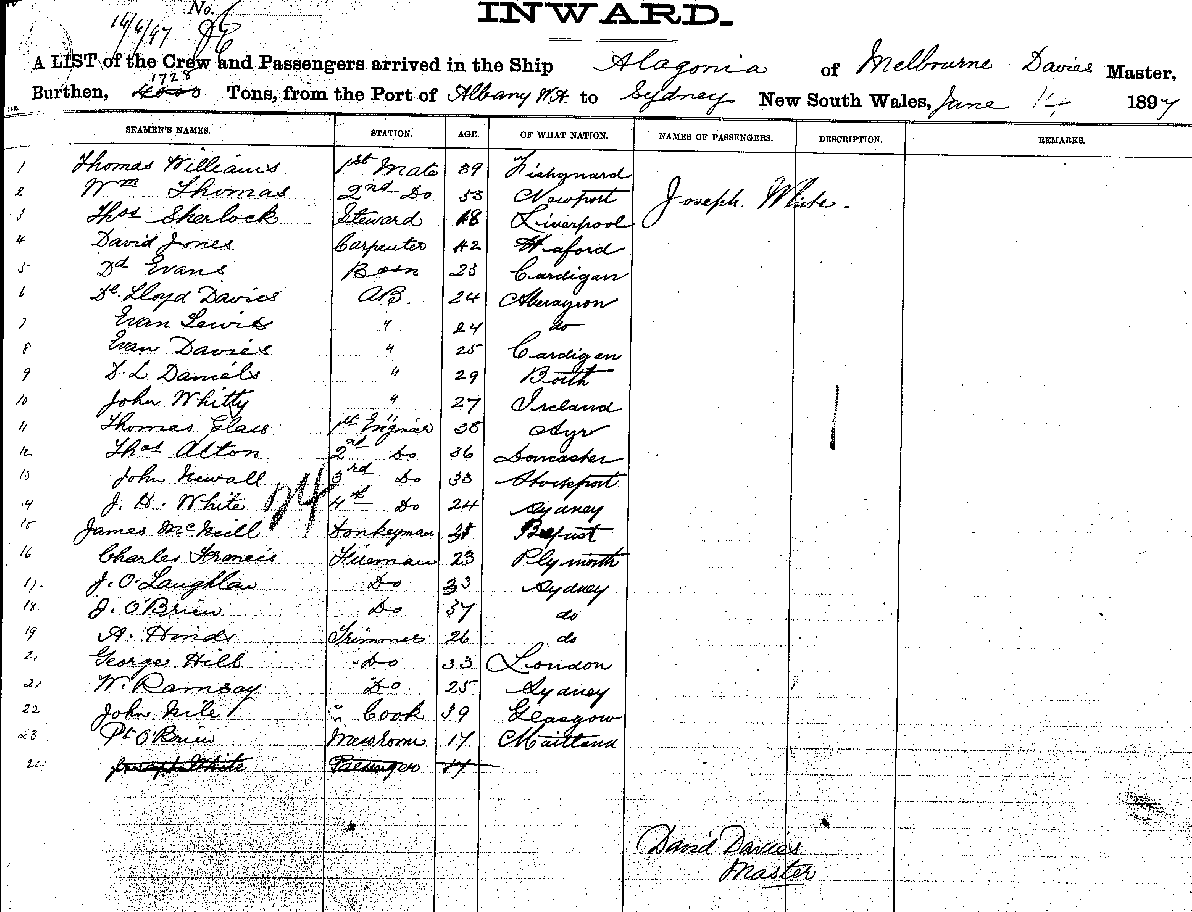 No.
14/6/97
INWARD.
A LIST of the Crew and Passengers arrived in the Ship Alagonia of Melbourne Davies Master,
1728
Burthen, Tons, from the Port of Albany W.A. to Sydney New South Wales, June 14 1897
SEAMEN'S NAMES. STATION. AGE. OF WHAT NATION. NAMES OF PASSENGERS. DESCRIPTION. REMARKS.
1 Thomas Williams 1st Mate 39 Fishguard
2 Wm Thomas 2nd Do 53 Newport Joseph White.
3 Thos Sherlock Steward 48 Liverpool
4 David Jones Carpenter 42 Haford
5 Dd Evans Bosn 23 Cardigan
6 Lloyd Davies AB. 24 Aberayron
7 Evan Lewis " 24 do
8 Evan Davies " 25 Cardigan
9 D. L. Daniels " 29 Borth
10 John Whitty " 27 Ireland
11 Thomas Glass 1st Engineer Ayr
12 Thos Alton 2nd Do 36 Doncaster
13 John Newall 3rd Do 33 Stockport
14 J. H. White 4th Do 24 Sydney
15 James McNeill Donkeyman Belfast
16 Charles Francis Fireman 23 Plymouth
17 J. O'Laughlan Do 33 Sydney
18 J. O'Brien Do 37 do
19 A. Hinds Trimmers 26 do
George Hill Do 33 London
21 W. Ramsay Do 25 Sydney
22 John " Cook 39 Glasgow
23 Pt O'Brien Messroom 17 Maitland
Joseph White Passenger
David Davies
Master